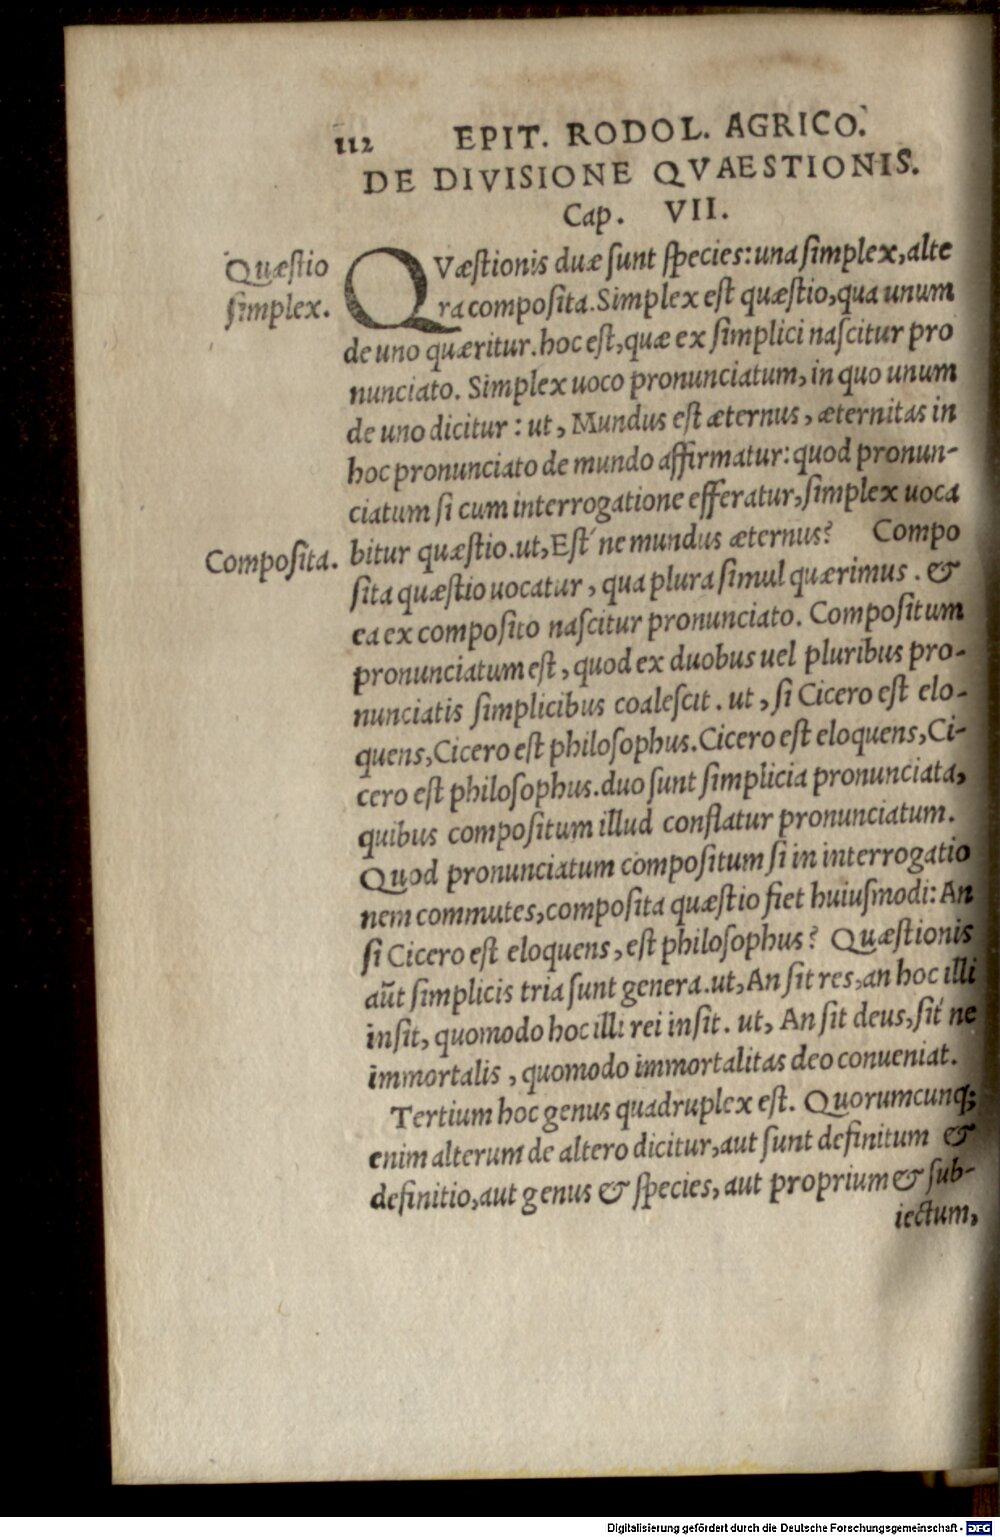 112 EPIT. RODOL. AGRICO.
DE DIVISIONE QVAESTIONIS.
Cap. VII.
Quæstio
simplex.
QVæstionis duæ sunt species: una simplex, alte
ra composita. Simplex est quæstio, qua unum
de uno quæritur. hoc est, quæ ex simplici nascitur pro
nunciato. Simplex uoco pronunciatum, in quo unum
de uno dicitur: ut, Mundus est æternus, æternitas in
hoc pronunciato de mundo affirmatur: quod pronun-
ciatum si cum interrogatione efferatur, simplex uoca
Composita.
bitur quæstio. ut, Est ne mundus æternus? Compo
sita quæstio uocatur, qua plura simul quærimus. &
ea ex composito nascitur pronunciato. Compositum
pronunciatum est, quod ex duobus uel pluribus pro-
nunciatis simplicibus coalescit. ut, si Cicero est elo-
quens, Cicero est philosophus. Cicero est eloquens, Ci-
cero est philosophus. duo sunt simplicia pronunciata,
quibus compositum illud conflatur pronunciatum.
Quod pronunciatum compositum si in interrogatio
nem commutes, composita quæstio fiet huiusmodi: An
si Cicero est eloquens, est philosophus? Quæstionis
aũt simplicis tria sunt genera. ut, An sit res, an hoc illi
insit, quomodo hoc illi rei insit. ut, An sit deus, sit ne
immortalis, quomodo immortalitas deo conueniat.
Tertium hoc genus quadruplex est. Quorumcunq;
enim alterum de altero dicitur, aut sunt definitum &
definitio, aut genus & species, aut proprium & sub-
iectum,
Digitalisierung gefördert durch die Deutsche Forschungsgemeinschaft - DFG